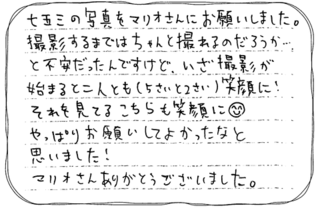 七五三の写真をマリオさんにお願いしました。
撮影するまではちゃんと撮れるのだろうか…
と不安だったんですけど、いざ撮影が
始まると二人とも(5さいと2さい)笑顔に!
それを見てるこちらも笑顔に😊
やっぱりお願いしてよかったなと
思いました!
マリオさんありがとうございました。